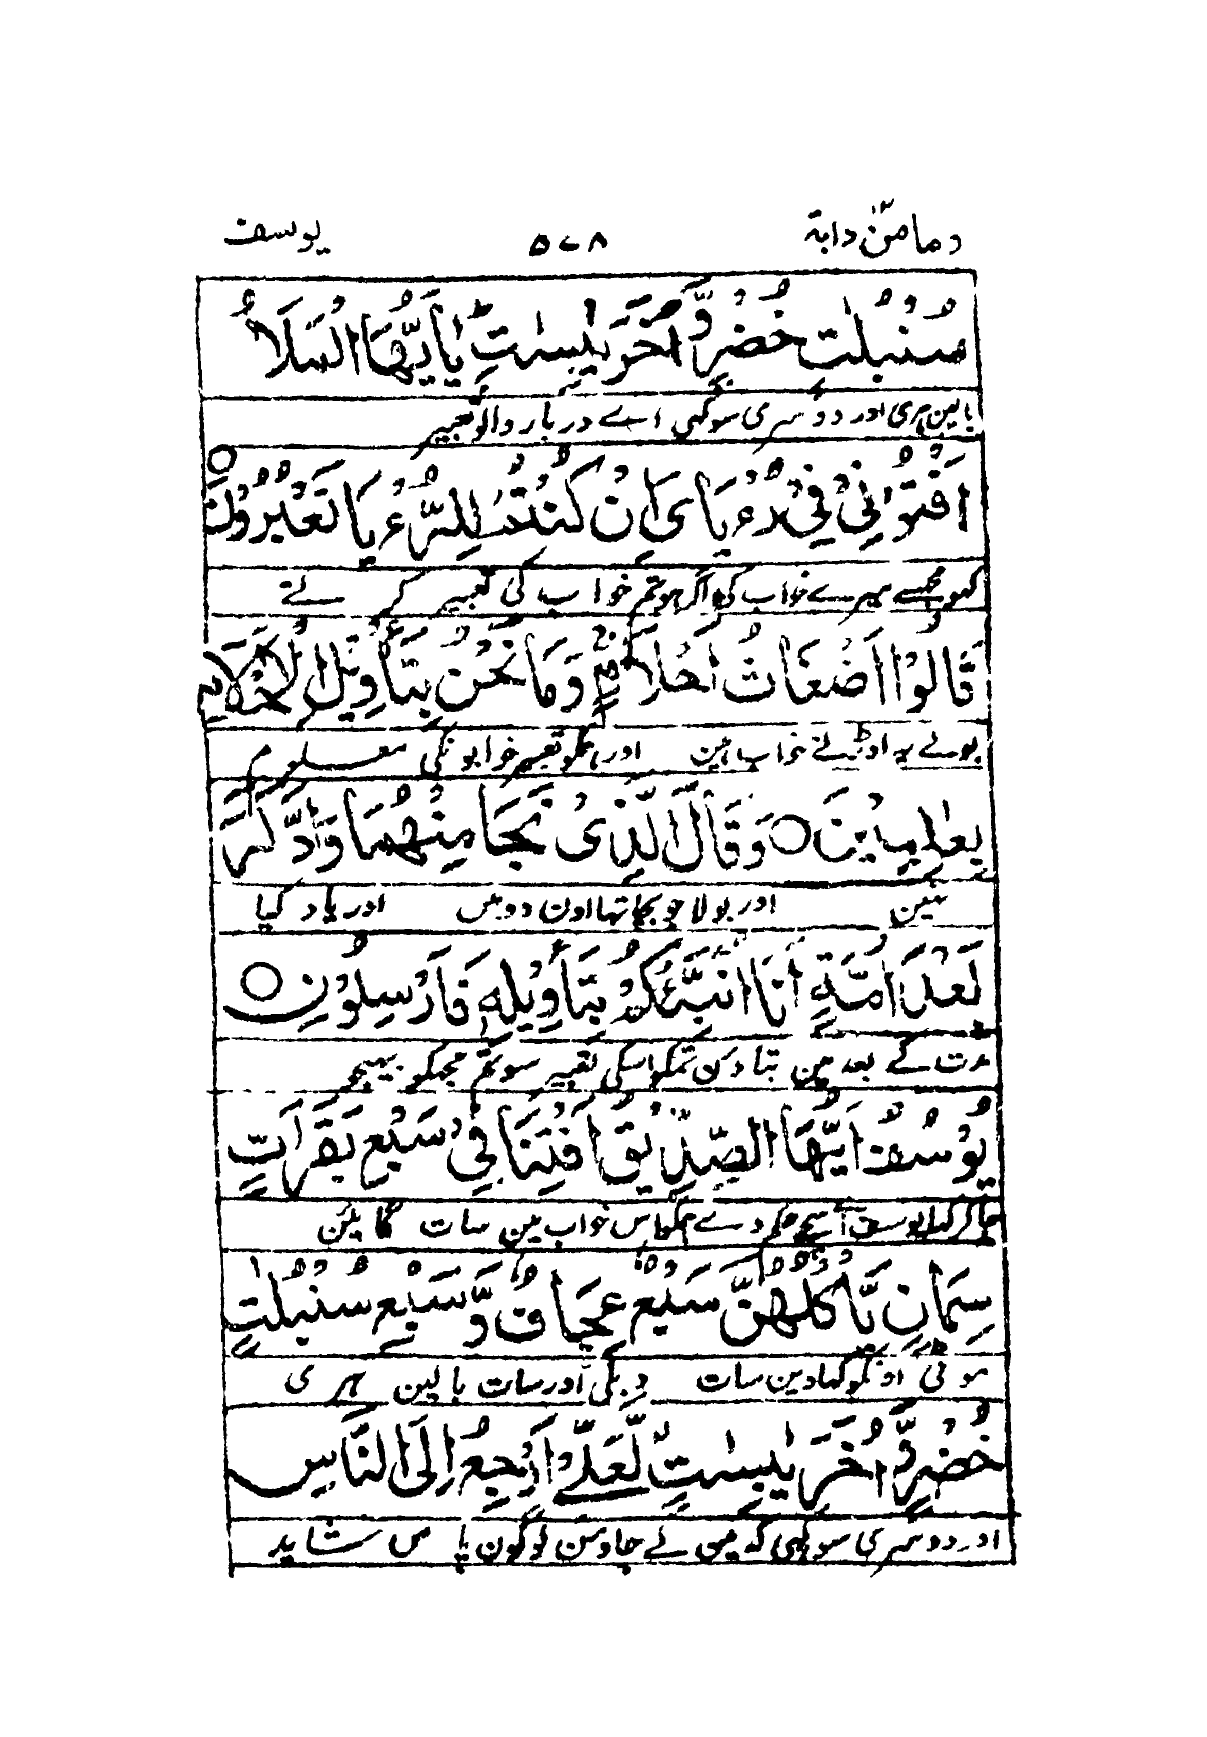 ومامن دابة ۵۷۸ يوسف
سُنْۢبُلٰتٍ خُضْرٍ وَّاُخَرَ يٰبِسٰتٍ يٰاَيُّهَا الْمَلَاُ
بالین ہری اور دوسری سوکھی اے دربار والو تعبیر
اَفْتُوْنِيْ فِيْ رُءْيَايَ اِنْ كُنْتُمْ لِلرُّءْيَا تَعْبُرُوْنَ
کہو مجھسے میرے خواب کی اگر ہو تم خواب کی تعبیر کرتے
قَالُوْا اَضْغَاثُ اَحْلَامٍ وَمَا نَحْنُ بِتَأْوِيْلِ الْاَحْلَامِ
بولے یہ اوڑتے خواب ہین اور ہمکو تعبیر خوابونکی معلوم
بِعٰلِمِيْنَ ○ وَقَالَ الَّذِيْ نَجَا مِنْهُمَا وَادَّكَرَ
نہین اور بولا جو بچا تھا اون دو مین اور یاد کیا
بَعْدَ اُمَّةٍ اَنَا اُنَبِّئُكُمْ بِتَأْوِيْلِهٖ فَاَرْسِلُوْنِ ○
مدت کے بعد مین بتاؤن تمکو اسکی تعبیر سو تم مجھکو بھیجو
يُوْسُفُ اَيُّهَا الصِّدِّيْقُ اَفْتِنَا فِيْ سَبْعِ بَقَرَاتٍ
جاکر کہا یوسف اے سچے حکم دے ہمکو اس خواب مین سات گائین
سِمَانٍ يَّأْكُلُهُنَّ سَبْعٌ عِجَافٌ وَّسَبْعِ سُنْۢبُلٰتٍ
موٹی اونکو کھاوین سات دبلی اور سات بالین ہری
خُضْرٍ وَّاُخَرَ يٰبِسٰتٍ لَّعَلِّيْ اَرْجِعُ اِلَى النَّاسِ
اور دوسری سوکھی کہ مین لے جاؤن لوگون پاس شاید